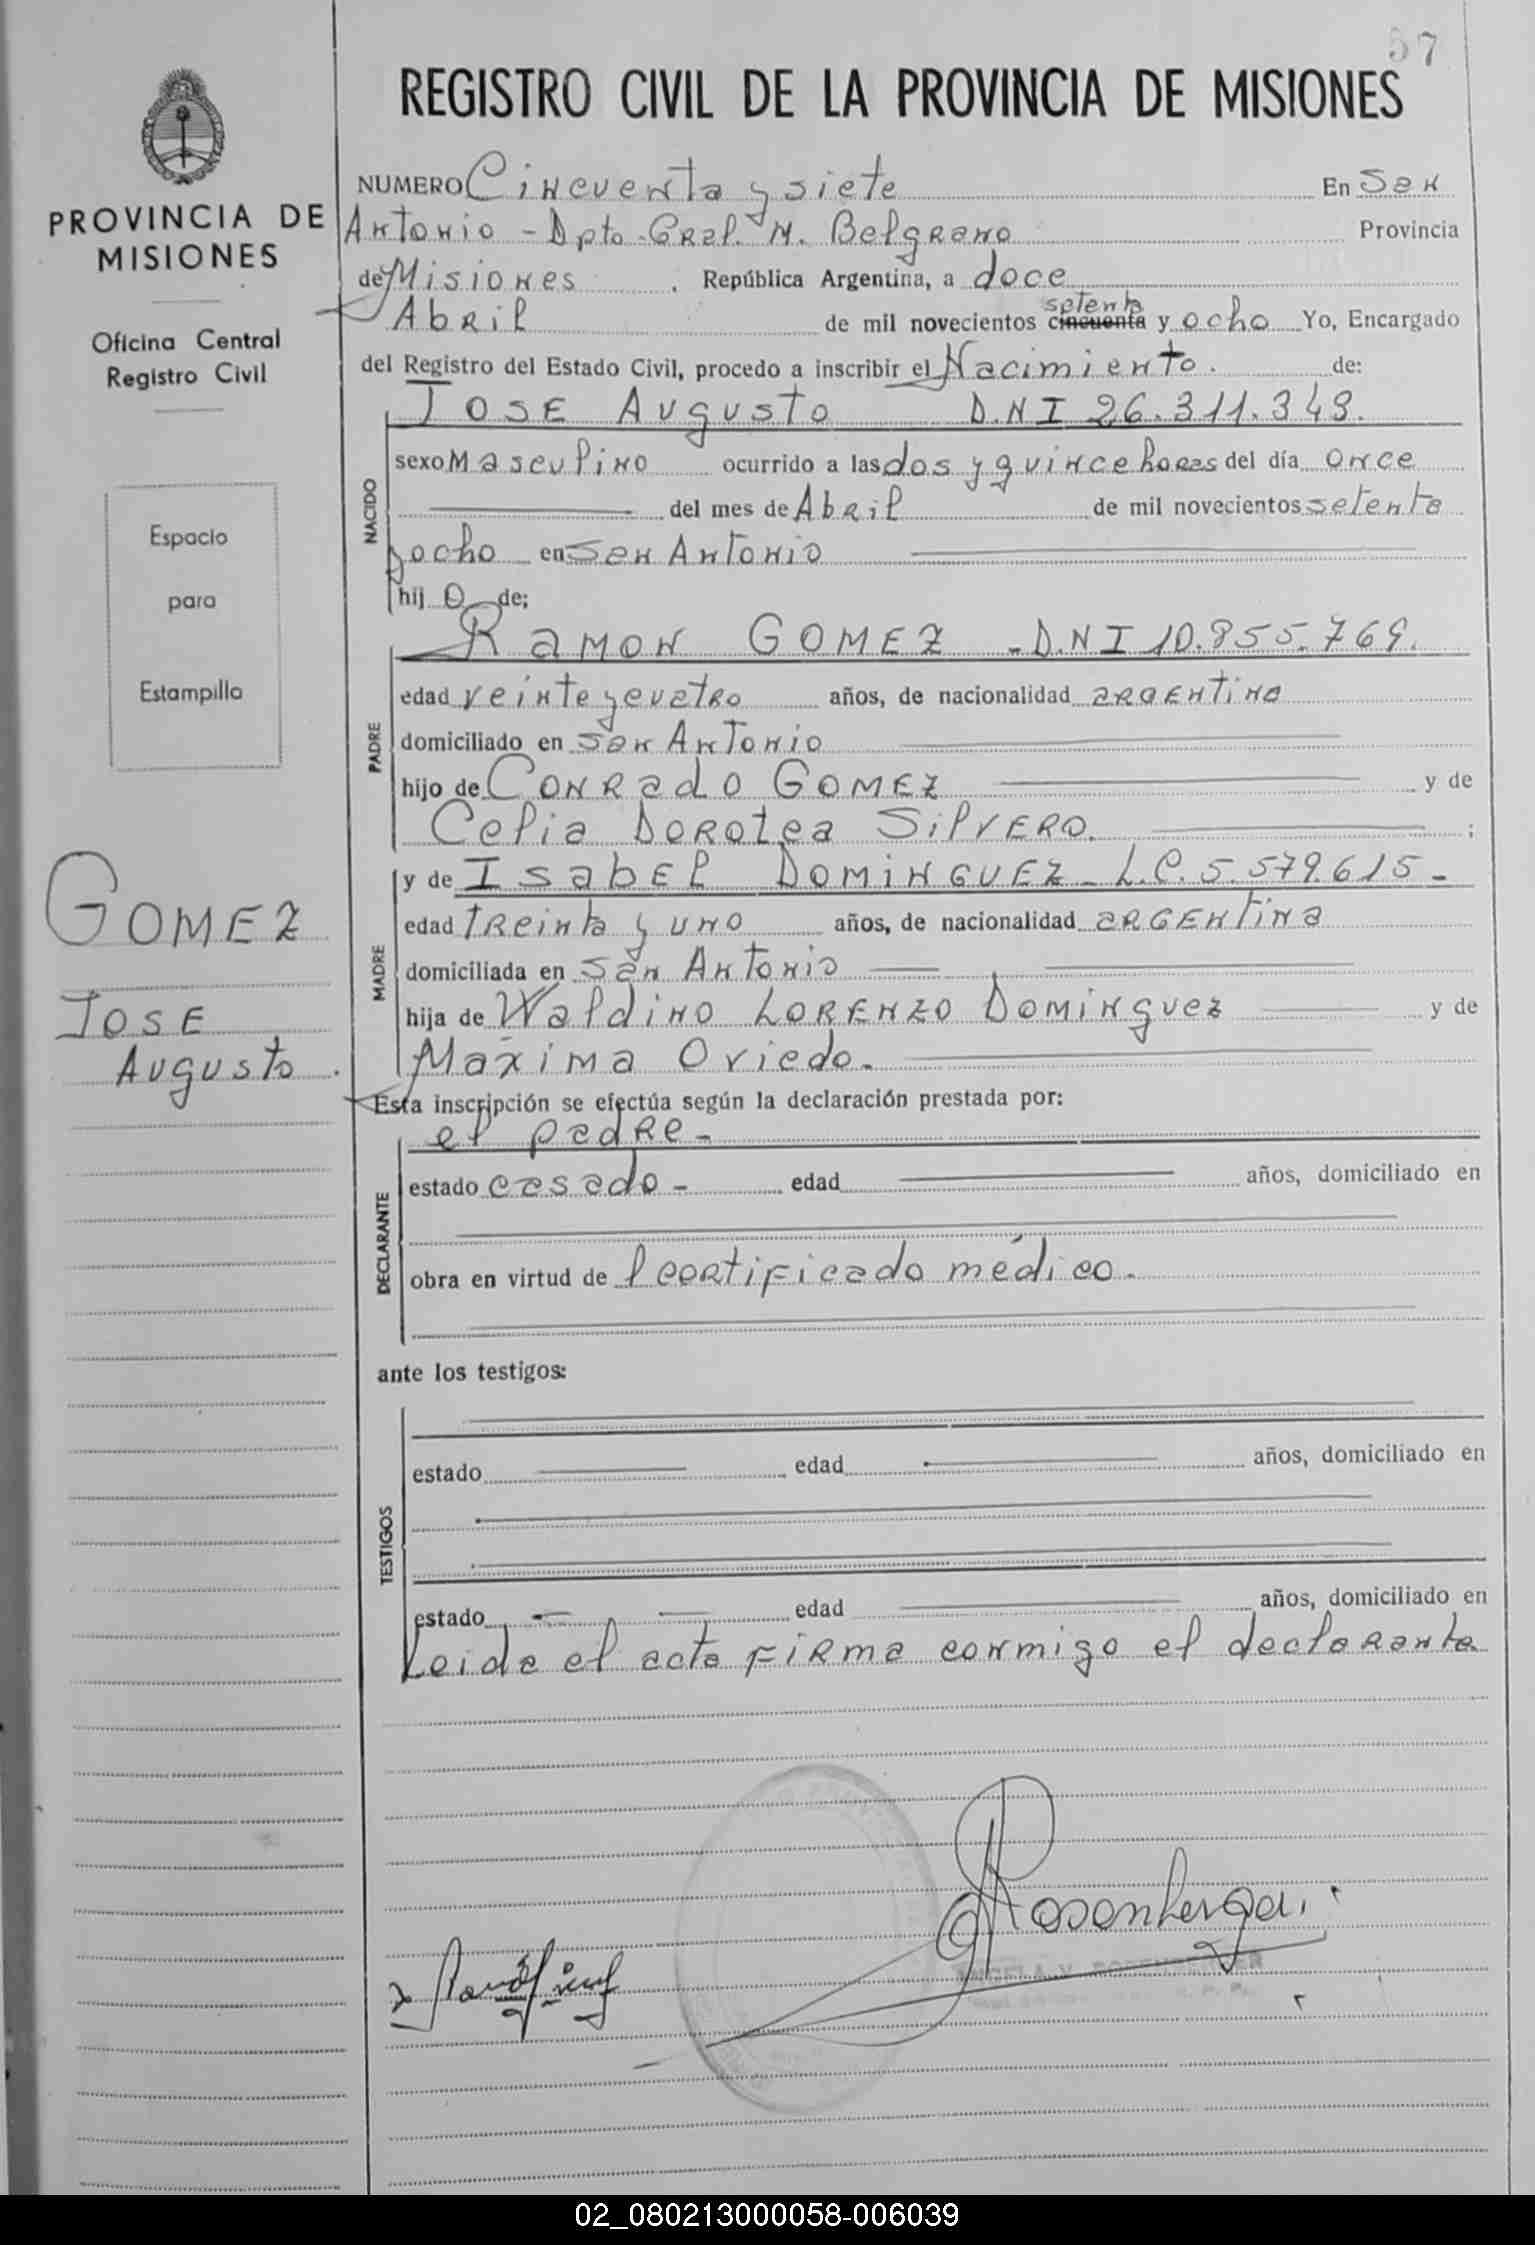 57
REGISTRO CIVIL DE LA PROVINCIA DE MISIONES
PROVINCIA DE
MISIONES
Oficina Central
Registro Civil
Espacio
para
Estampilla
GOMEZ
JOSE
Augusto.
NUMERO Cincuenta y siete En San
Antonio - Dpto. Gral. M. Belgrano Provincia
de Misiones. República Argentina, a doce
setenta
Abril de mil novecientos cincuenta y ocho Yo, Encargado
del Registro del Estado Civil, procedo a inscribir el Nacimiento. de:
JOSE Augusto D.N.I 26.311.349.
NACIDO
sexo Masculino ocurrido a las dos y quince horas del día once
del mes de Abril de mil novecientos setenta
y ocho en San Antonio
hij o de;
RAMON GOMEZ - D.N.I 10.855.769.
PADRE
edad veinte y cuatro años, de nacionalidad argentina
domiciliado en San Antonio
hijo de Conrado GOMEZ y de
Celia Dorotea Silvero. ;
y de Isabel DOMINGUEZ - L.C. 5.579.615 -
MADRE
edad treinta y uno años, de nacionalidad argentina
domiciliada en San Antonio
hija de Waldino Lorenzo Dominguez y de
Máxima Oviedo.
Esta inscripción se efectúa según la declaración prestada por:
el padre -
DECLARANTE
estado casado - edad años, domiciliado en
obra en virtud de l certificado médico.
ante los testigos:
TESTIGOS
estado edad años, domiciliado en
estado edad años, domiciliado en
Leida el acta firma conmigo el declarante
Rosenberger
ANGELA V. ROSENBERGER
02_080213000058-006039